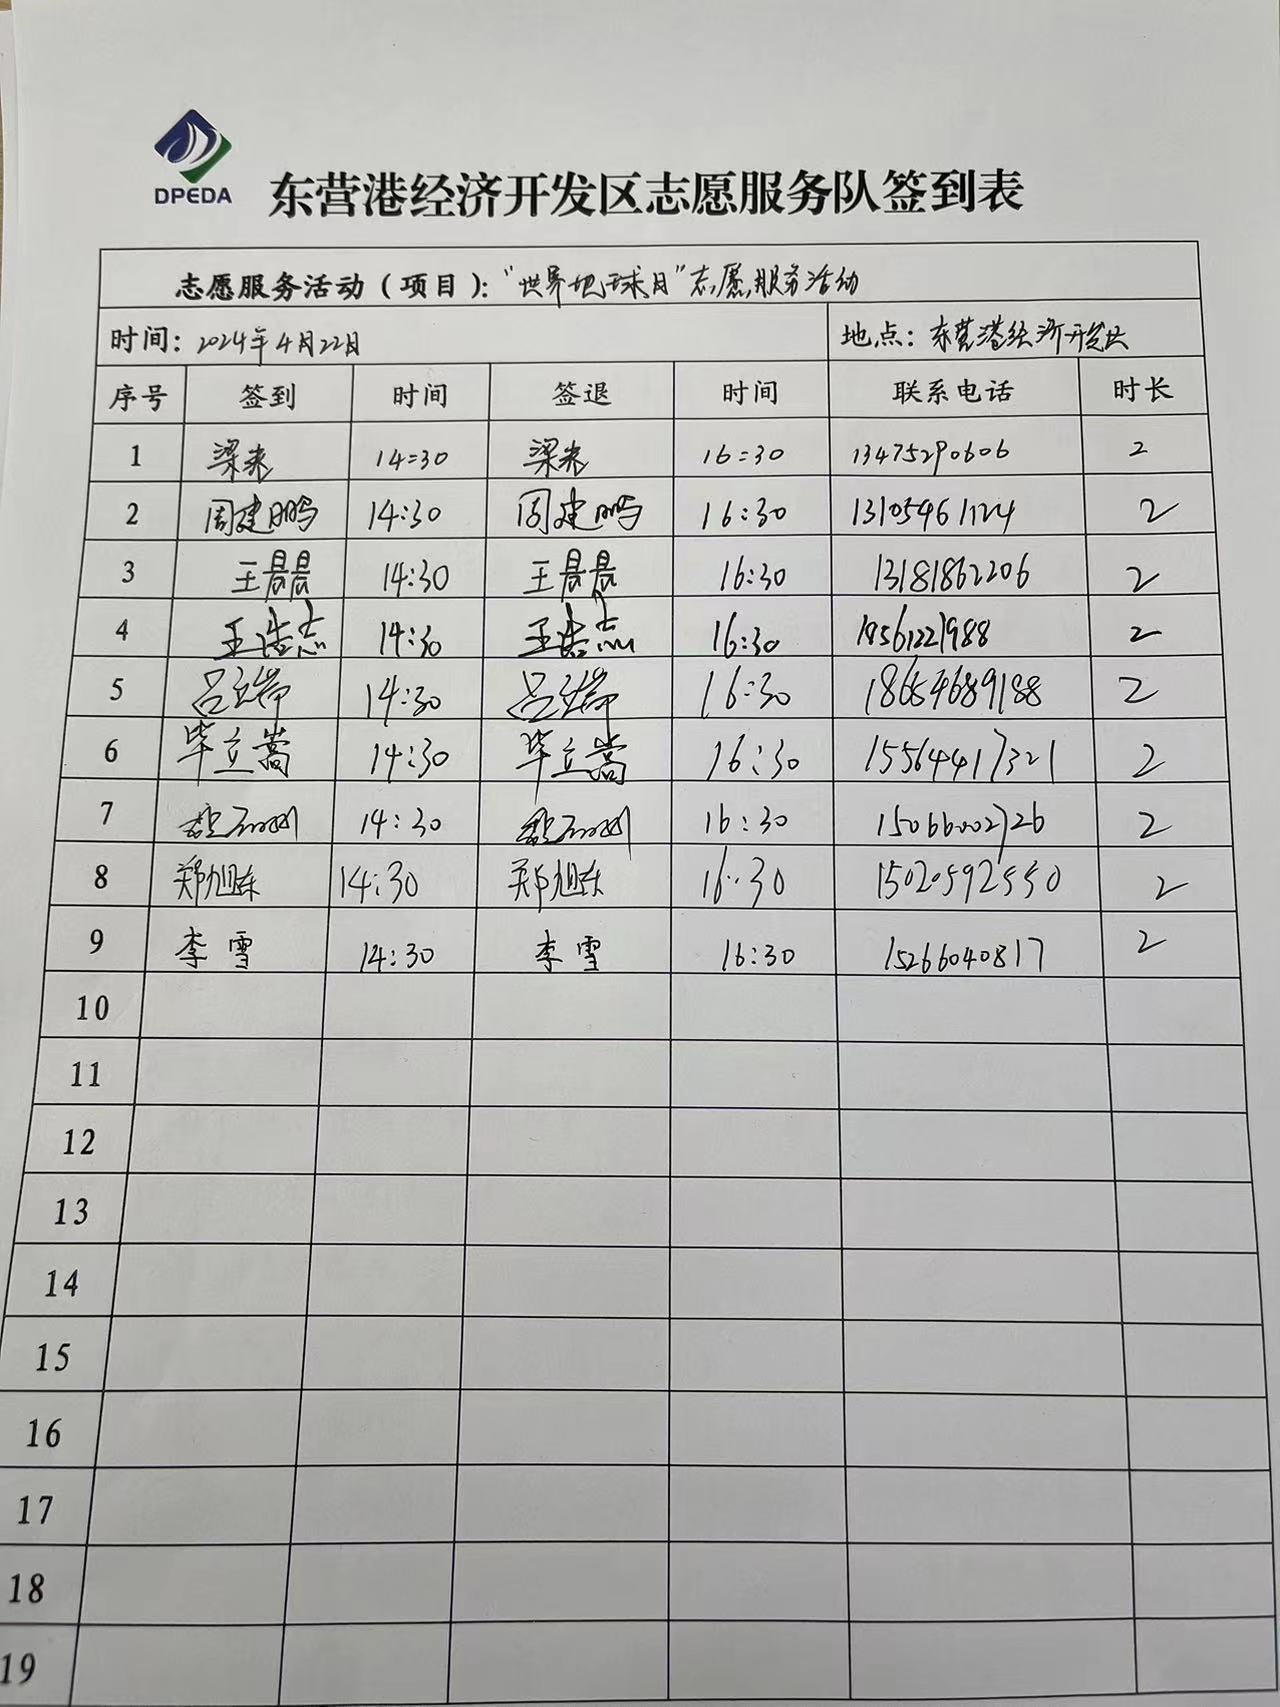 DPEDA
东营港经济开发区志愿服务队签到表
志愿服务活动（项目）：“世界地球日”志愿服务活动
时间：2024年4月22日 地点：东营港经济开发区
序号 签到 时间 签退 时间 联系电话 时长
1 梁来 14:30 梁来 16:30 13475290606 2
2 周建鹏 14:30 周建鹏 16:30 13105461124 2
3 王晨晨 14:30 王晨晨 16:30 13181862206 2
4 王浩志 14:30 王浩志 16:30 18561221988 2
5 吕 14:30 吕 16:30 18654689188 2
6 毕立嵩 14:30 毕立嵩 16:30 15564417321 2
7 14:30 16:30 15066002726 2
8 郑旭东 14:30 郑旭东 16:30 15020592550 2
9 李雪 14:30 李雪 16:30 15266040817 2
10
11
12
13
14
15
16
17
18
19